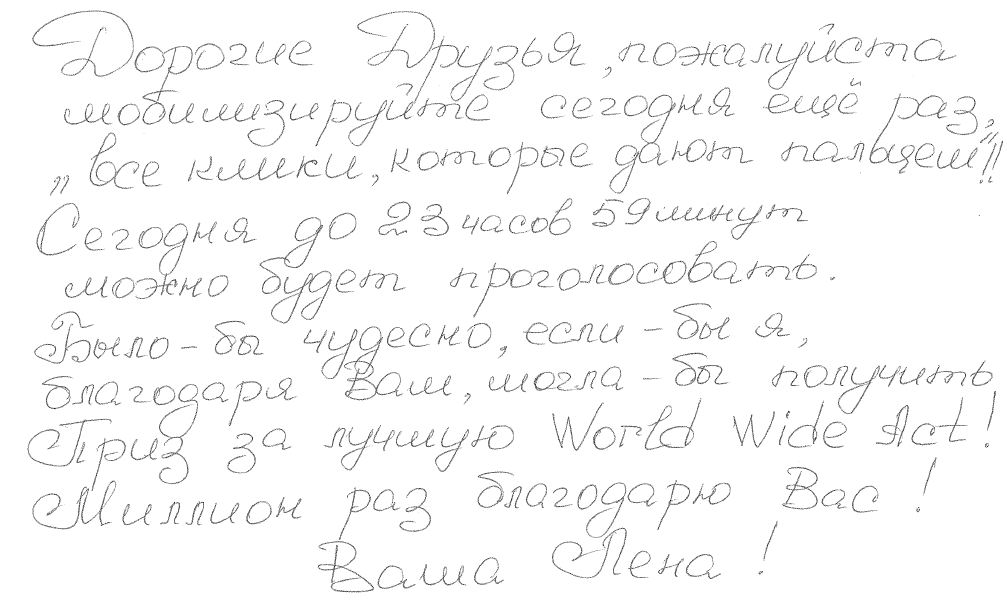 Дорогие Друзья, пожалуйста
мобилизируйте сегодня ещё раз,
„все клики, которые дают пальцем"!!
Сегодня до 23 часов 59 минут
можно будет проголосовать.
Было-бы чудесно, если-бы я,
благодаря Вам, могла-бы получить
Приз за лучшую World Wide Act!
Миллион раз благодарю Вас!
Ваша Лена!